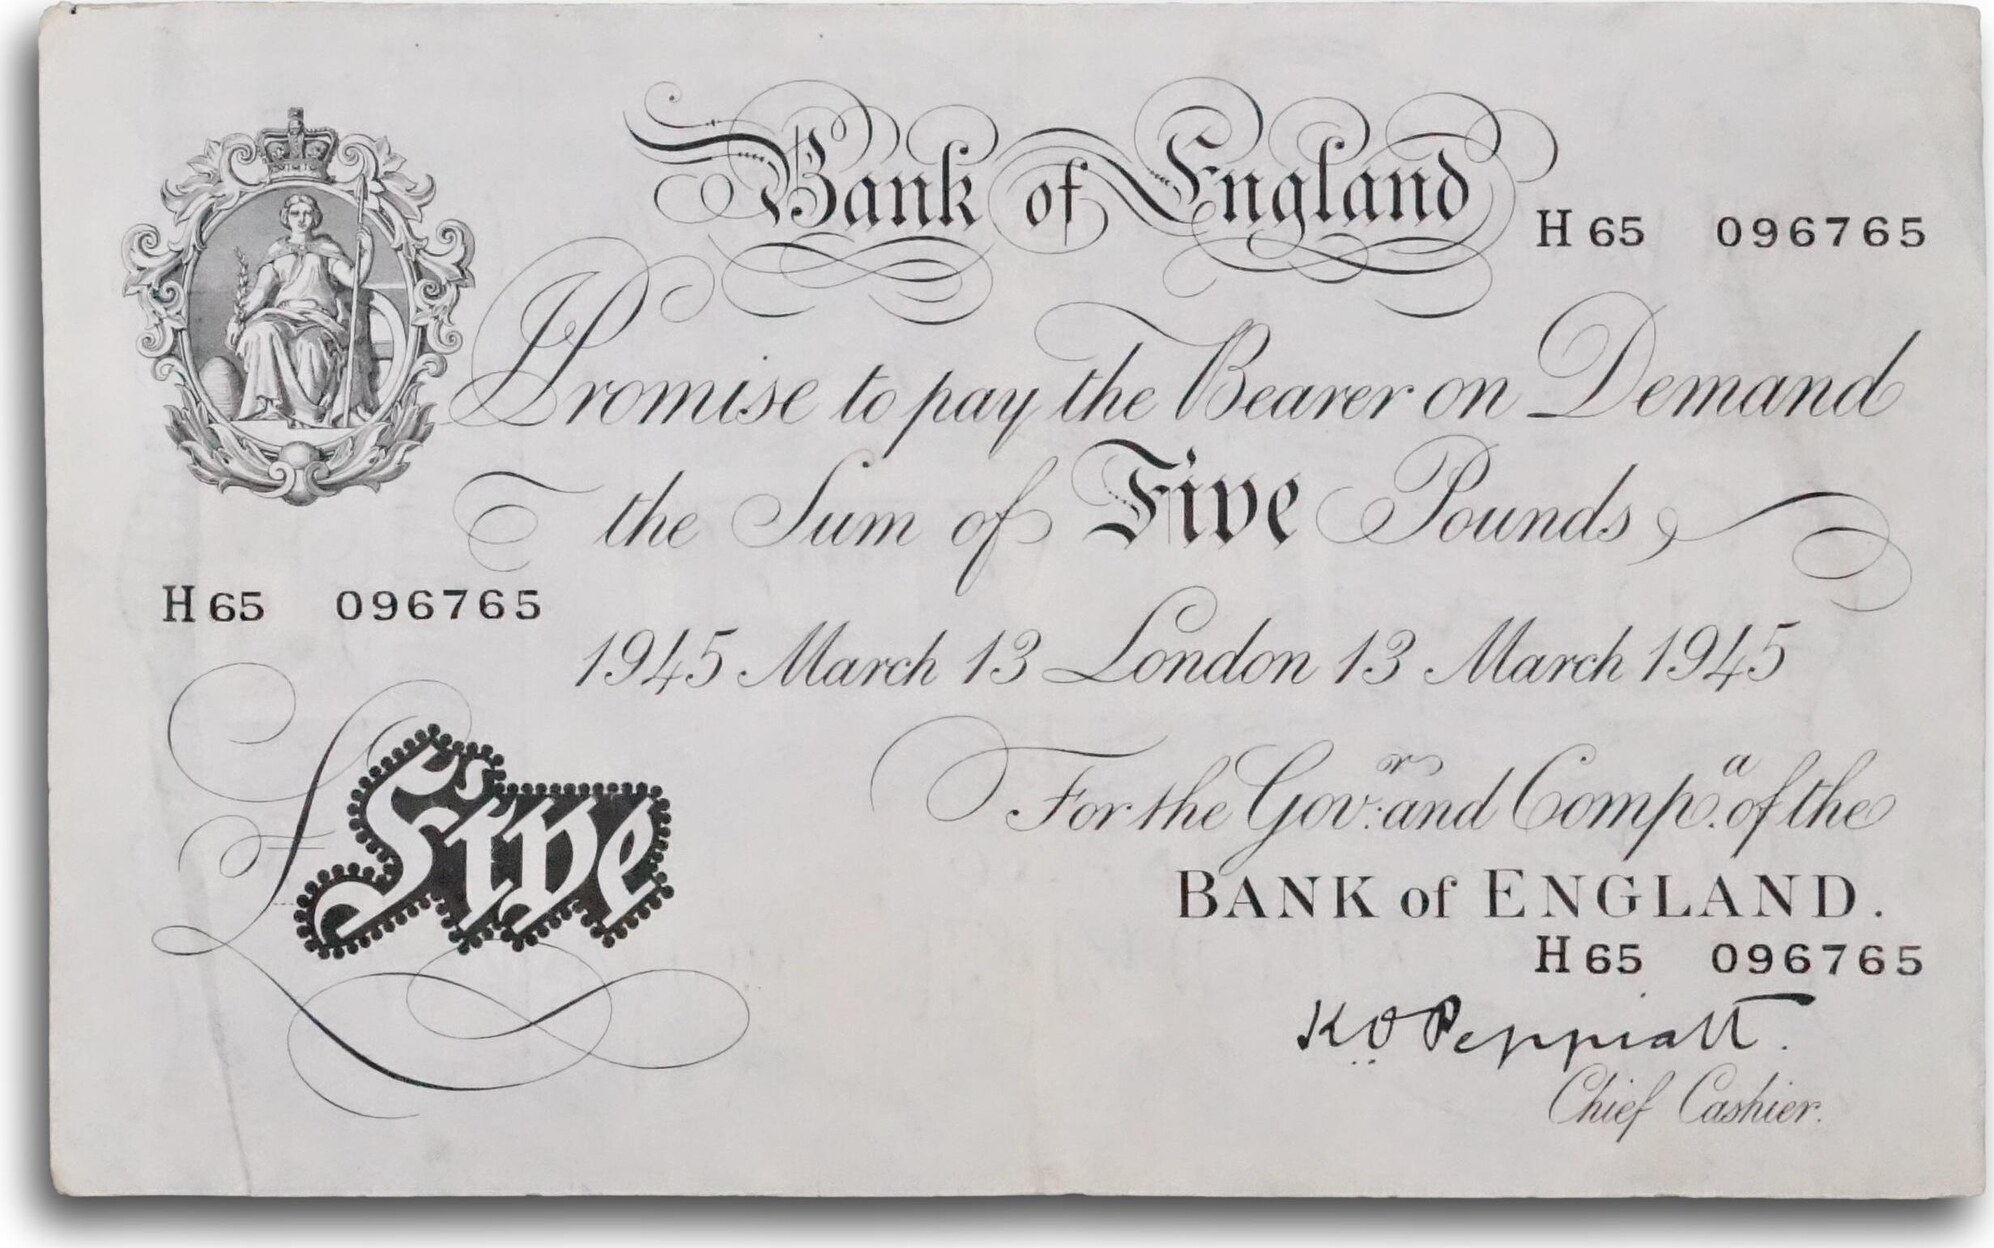 Bank of England
H65 096765
I Promise to pay the Bearer on Demand
the Sum of Five Pounds,
H65 096765
1945 March 13 London 13 March 1945
£Five
For the Govr: and Compa. of the
BANK of ENGLAND.
H65 096765
K.O. Peppiatt.
Chief Cashier.